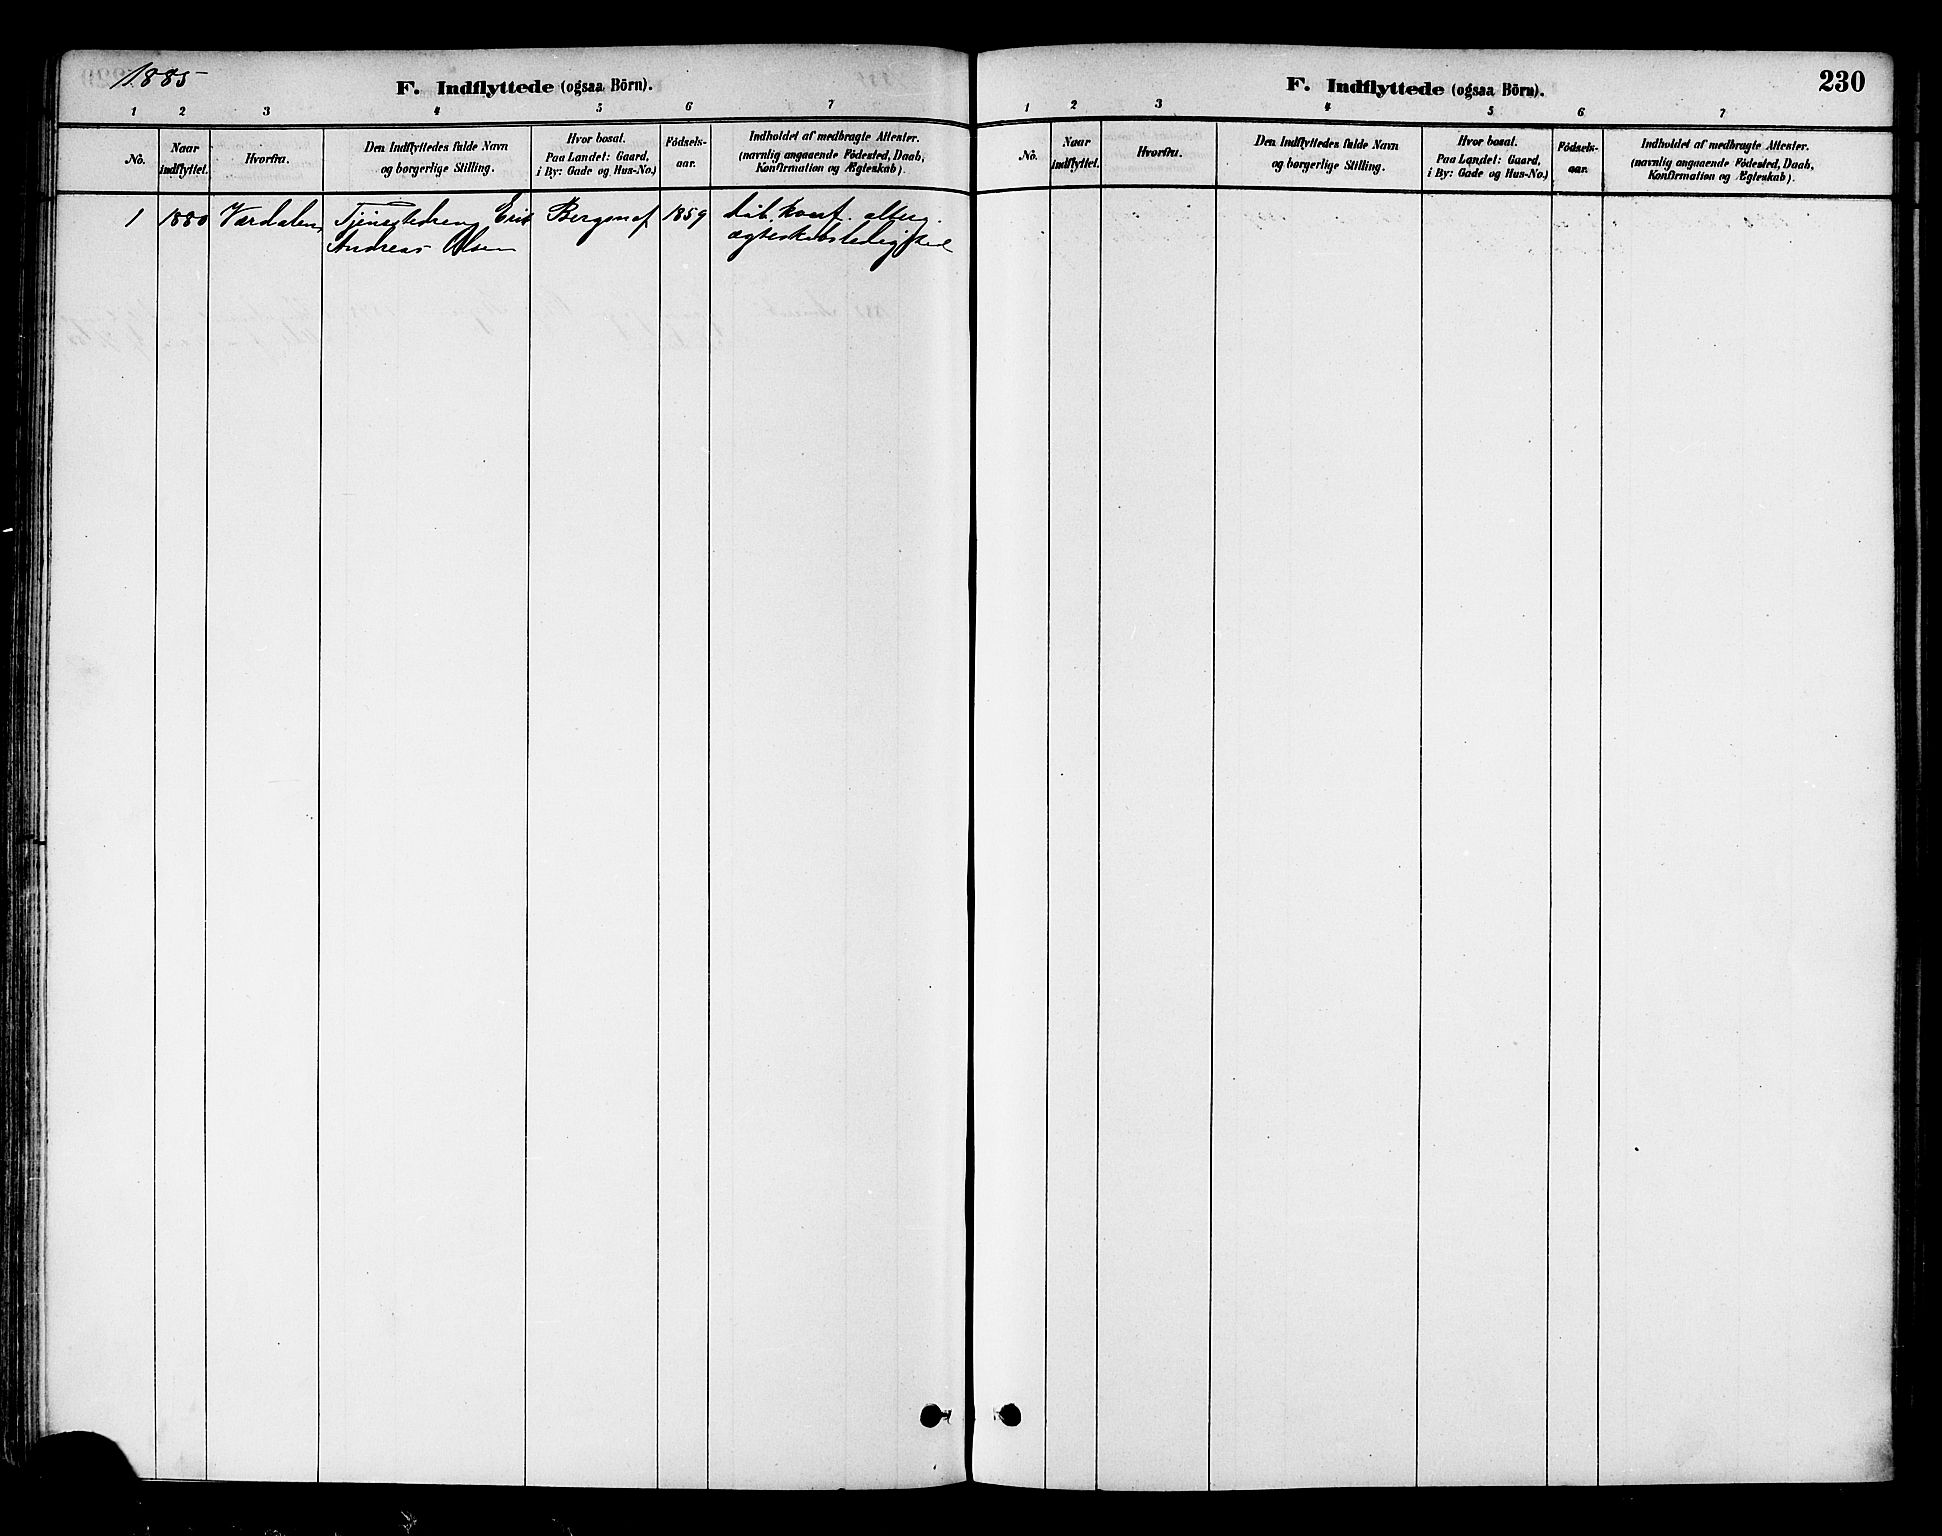 1885
F. Indflyttede (ogsaa Börn).
1 2 3 4 5 6 7
No.
Naar
indflyttet.
Hvorfra.
Den Indflyttedes fulde Navn
og borgerlige Stilling.
Hvor bosat.
Paa Landet: Gaard,
i By: Gade og Hus-No.)
Födsels-
aar.
Indholdet af medbragte Attester.
(navnlig angaaende Födested, Daab,
Konfirmation og Ægteskab).
1 1880 Værdalen Tjenestedreng Erik 1859
Andreas Olsen
ægteskabsledighed
F. Indflyttede (ogsaa Börn).
230
1 2 3 4 5 6 7
No.
Naar
indflyttet.
Hvorfra.
Den Indflyttedes fulde Navn
og borgerlige Stilling.
Hvor bosat.
Paa Landet: Gaard,
i By: Gade og Hus-No.)
Födsels-
aar.
Indholdet af medbragte Attester.
(navnlig angaaende Födested, Daab,
Konfirmation og Ægteskab).